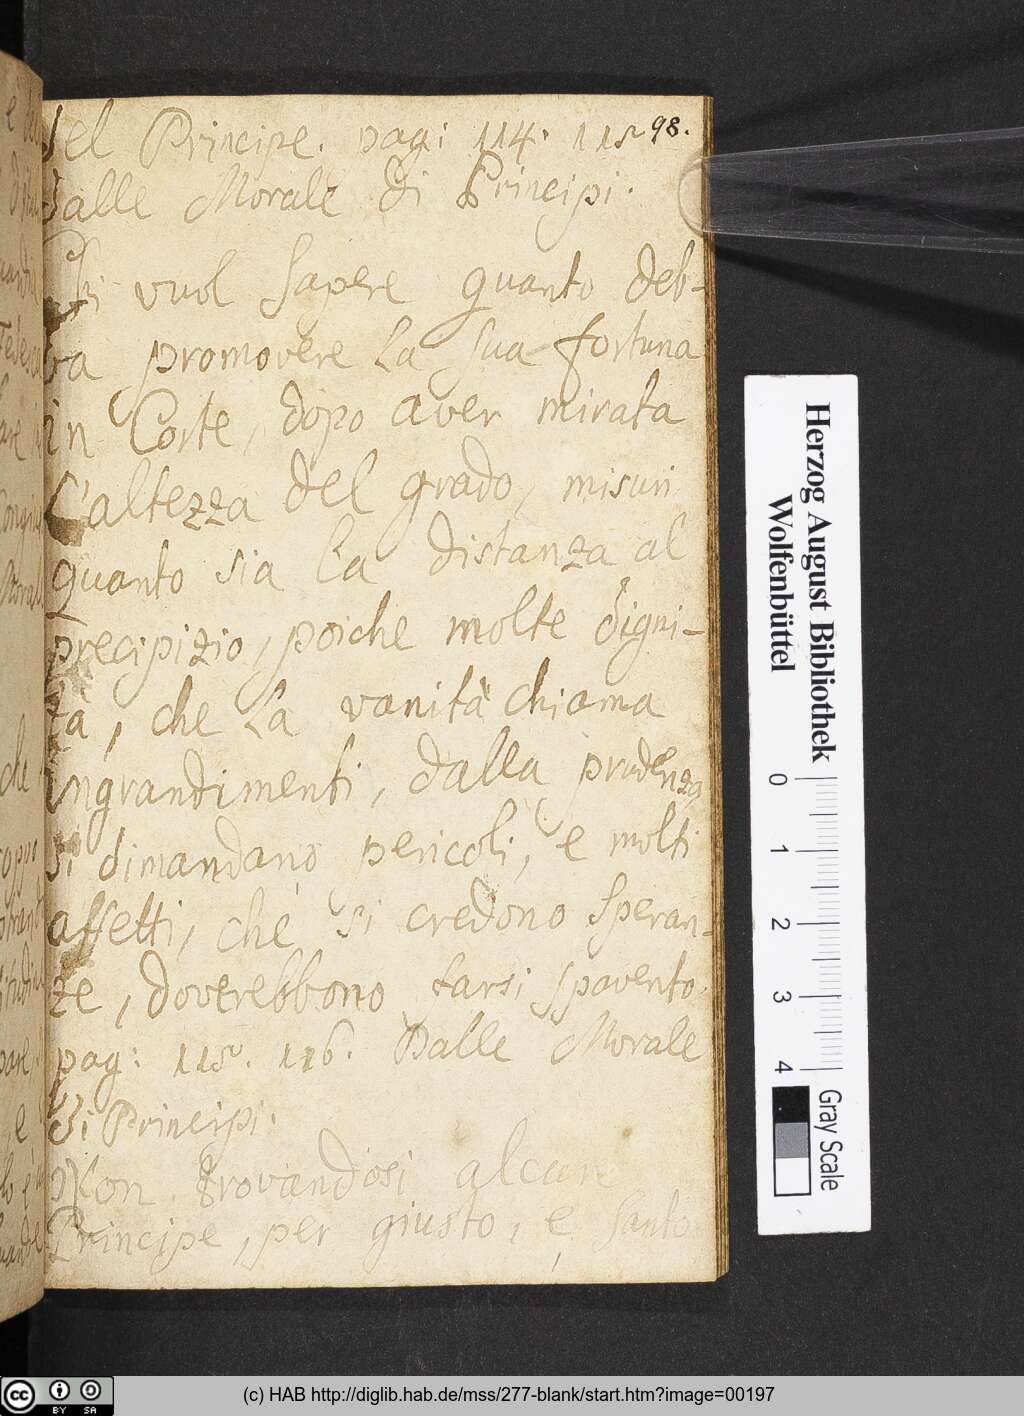 del Principe. pag: 114. 115 98.
dalle Morale di Principi.
Chi vuol sapere quanto deb-
ba promovere la sua fortuna
in Corte, dopo aver mirata
l'altezza del grado, misuri
quanto sia la distanza al
precipizio, poiche molte digni-
tà, che la vanità chiama
ingrandimenti, dalla prudenza
si dimandano pericoli, e molti
affetti, che si credono speran-
ze, doverebbono farsi spavento.
pag: 115. 116. Dalle Morale
di Principi.
Non trovandosi alcun
Principe, per giusto, e santo
Herzog August Bibliothek
Wolfenbüttel
0 1 2 3 4
Gray Scale
cc BY SA
(c) HAB http://diglib.hab.de/mss/277-blank/start.htm?image=00197